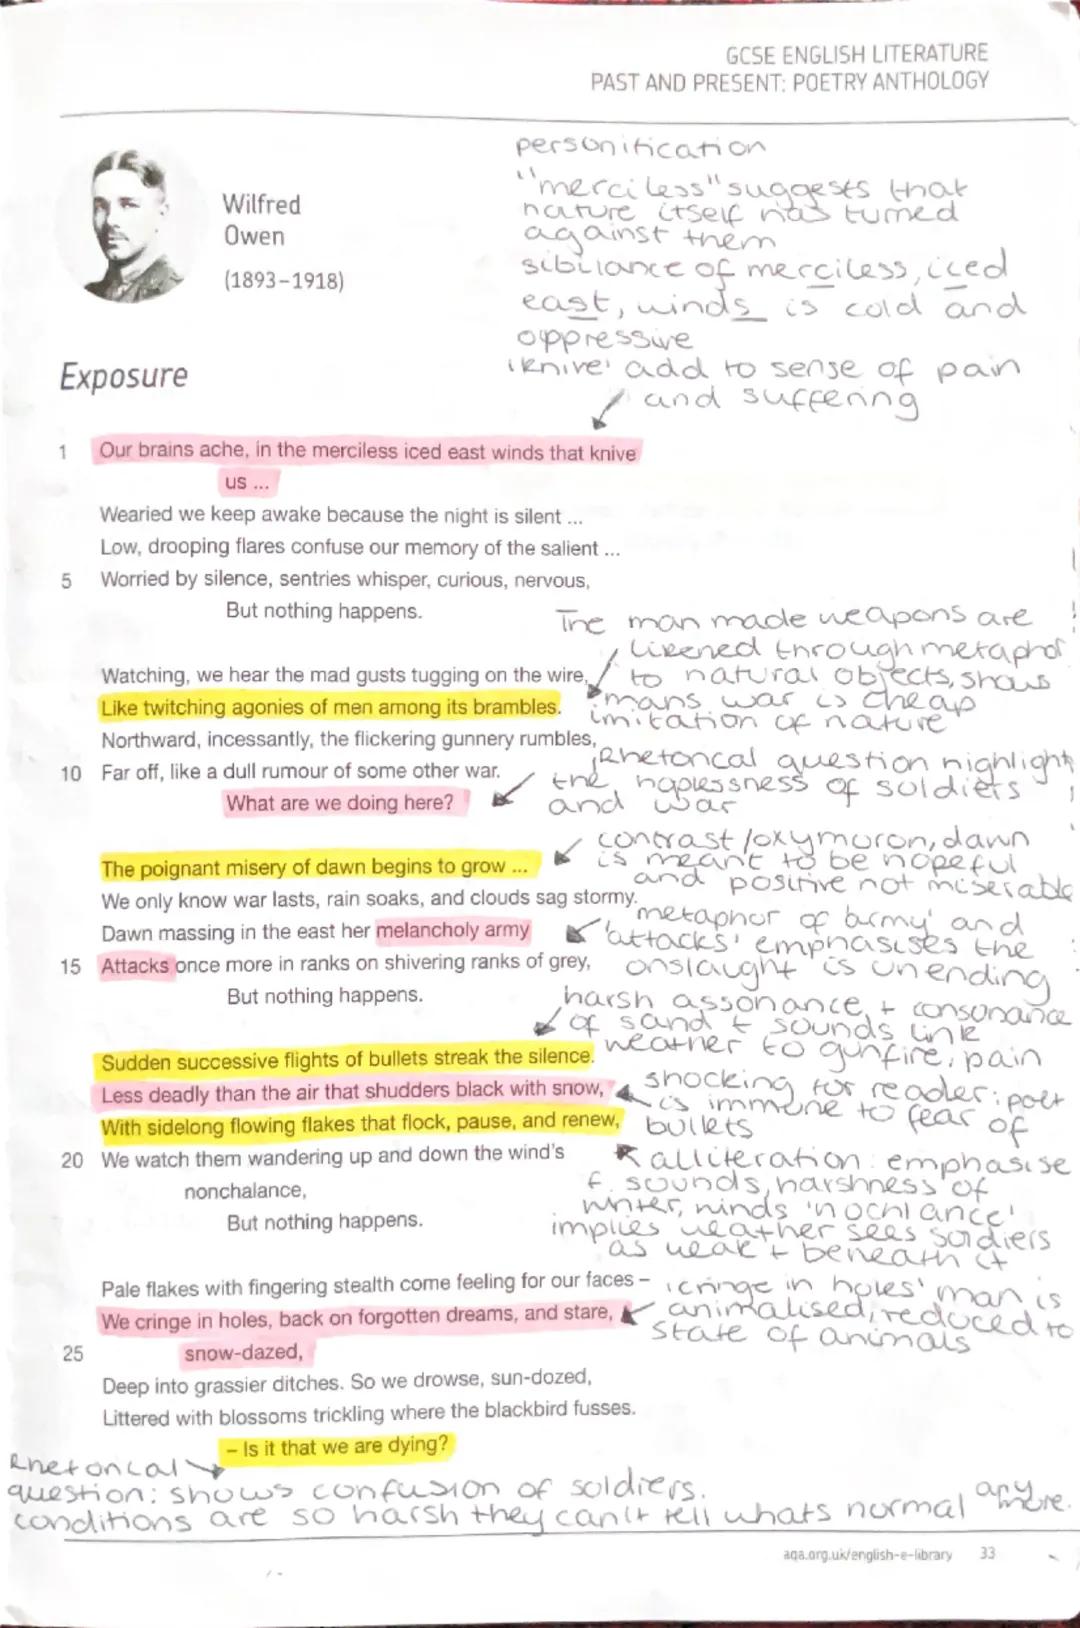 GCSE ENGLISH LITERATURE
PAST AND PRESENT: POETRY ANTHOLOGY
Wilfred
Owen
(1893–1918)
personification
"merciless" suggests that
nature itself has turned
against them
sibilance of merciless, iced
east, winds is cold and
oppressive
'knive' add to sense of pain
and suffering
Exposure
1 Our brains ache, in the merciless iced east winds that knive
us ...
Wearied we keep awake because the night is silent ...
Low, drooping flares confuse our memory of the salient ...
5 Worried by silence, sentries whisper, curious, nervous,
But nothing happens.
The man made weapons are
likened through metaphor
to natural objects, shows
mans war is cheap
imitation of nature
Watching, we hear the mad gusts tugging on the wire,
Like twitching agonies of men among its brambles.
Northward, incessantly, the flickering gunnery rumbles,
10 Far off, like a dull rumour of some other war.
What are we doing here?
Rhetorical question highlight
the hoplessness of soldiers
and war
contrast/oxymoron, dawn
is meant to be hopeful
and positive not miserable
The poignant misery of dawn begins to grow ...
We only know war lasts, rain soaks, and clouds sag stormy.
Dawn massing in the east her melancholy army
15 Attacks once more in ranks on shivering ranks of grey,
But nothing happens.
metaphor of 'army' and
'attacks' emphasises the
onslaught is unending
harsh assonance + consonance
of s and t sounds link
weather to gunfire, pain
Sudden successive flights of bullets streak the silence.
Less deadly than the air that shudders black with snow,
With sidelong flowing flakes that flock, pause, and renew,
20 We watch them wandering up and down the wind's
nonchalance,
But nothing happens.
shocking for reader: poet
is immune to fear of
bullets
alliteration: emphasise
f. sounds, harshness of
winter, winds
implies weather sees soldiers
as weak + beneath it
Pale flakes with fingering stealth come feeling for our faces –
We cringe in holes, back on forgotten dreams, and stare,
25 snow-dazed,
Deep into grassier ditches. So we drowse, sun-dozed,
Littered with blossoms trickling where the blackbird fusses.
– Is it that we are dying?
'cringe in holes' man is
animalised, reduced to
state of animals
Rhetorical
question: shows confusion of soldiers.
conditions are so harsh they can't tell whats normal anymore.
aqa.org.uk/english-e-library 33